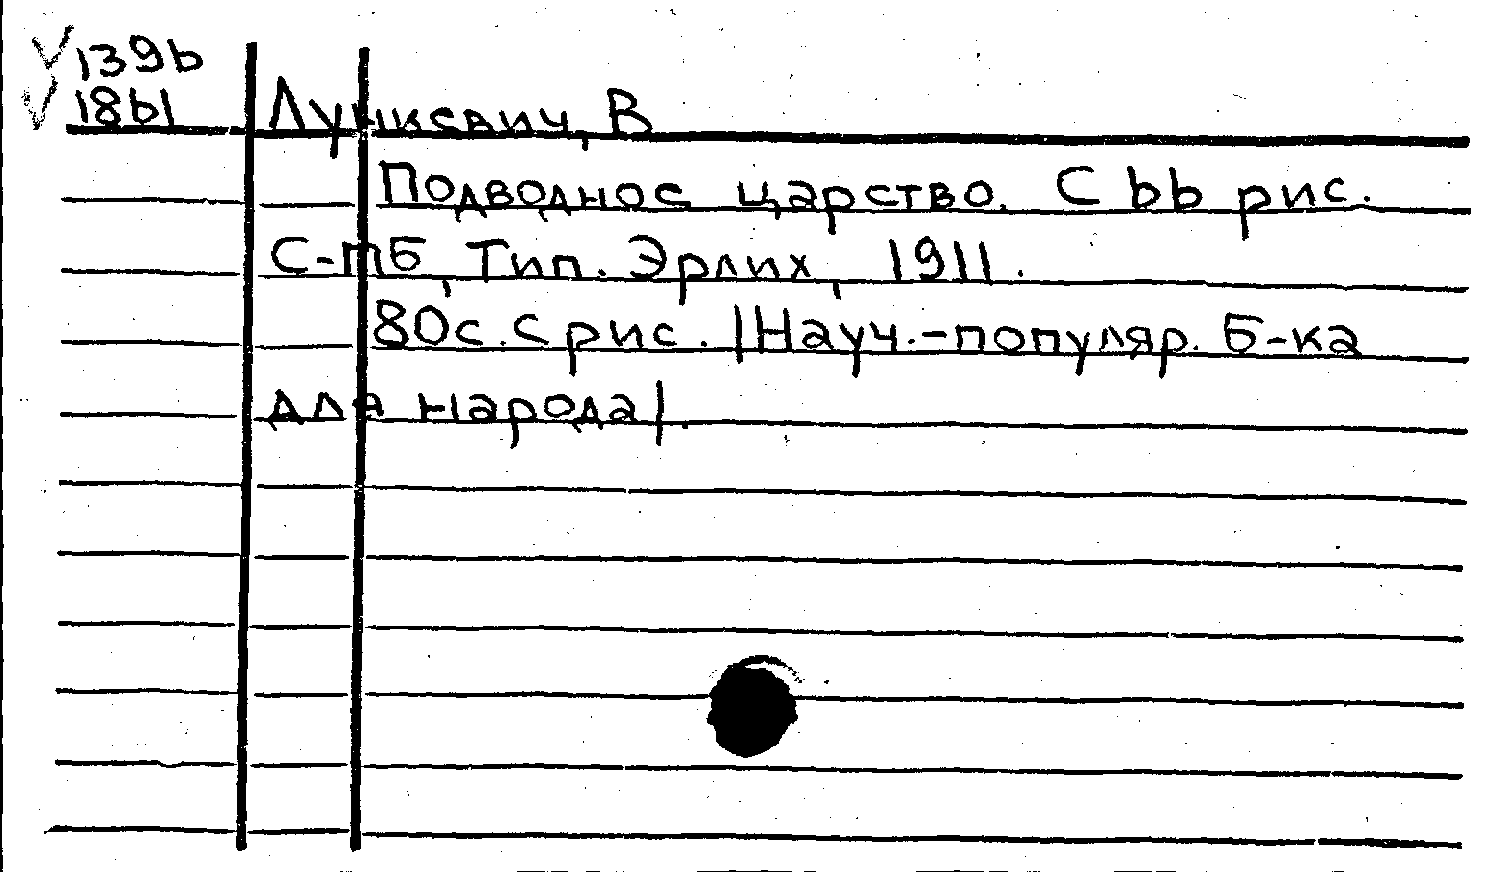 V 1396
V 1861
Лункевич, В
Подводное царство. С 66 рис.
С-пб, Тип. Эрлих, 1911.
80с. с рис. |Науч.-популяр. Б-ка
для народа|.